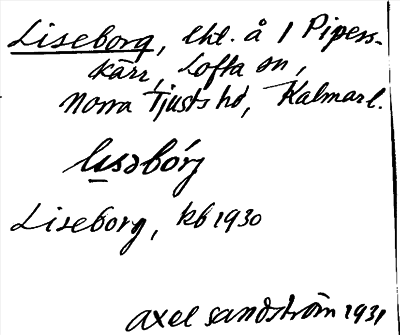 Liseborg, lht. å 1 Pipers-
kärr, Lofta sn,
Norra Tjusts hd, Kalmar l.
lisəbórj
Liseborg, kb 1930
Axel Sandström 1931